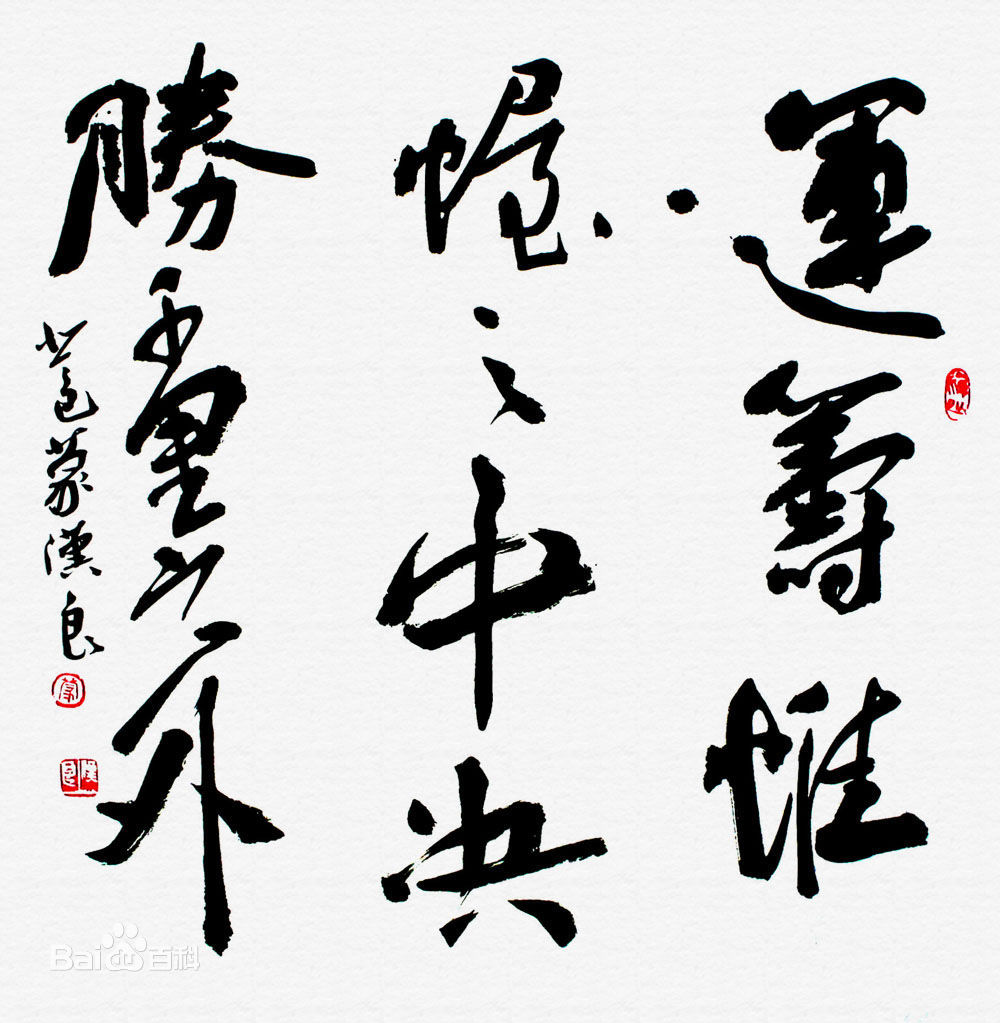 運籌帷
幄之中决
勝千里之外
邑蒙漢良
Baidu百科